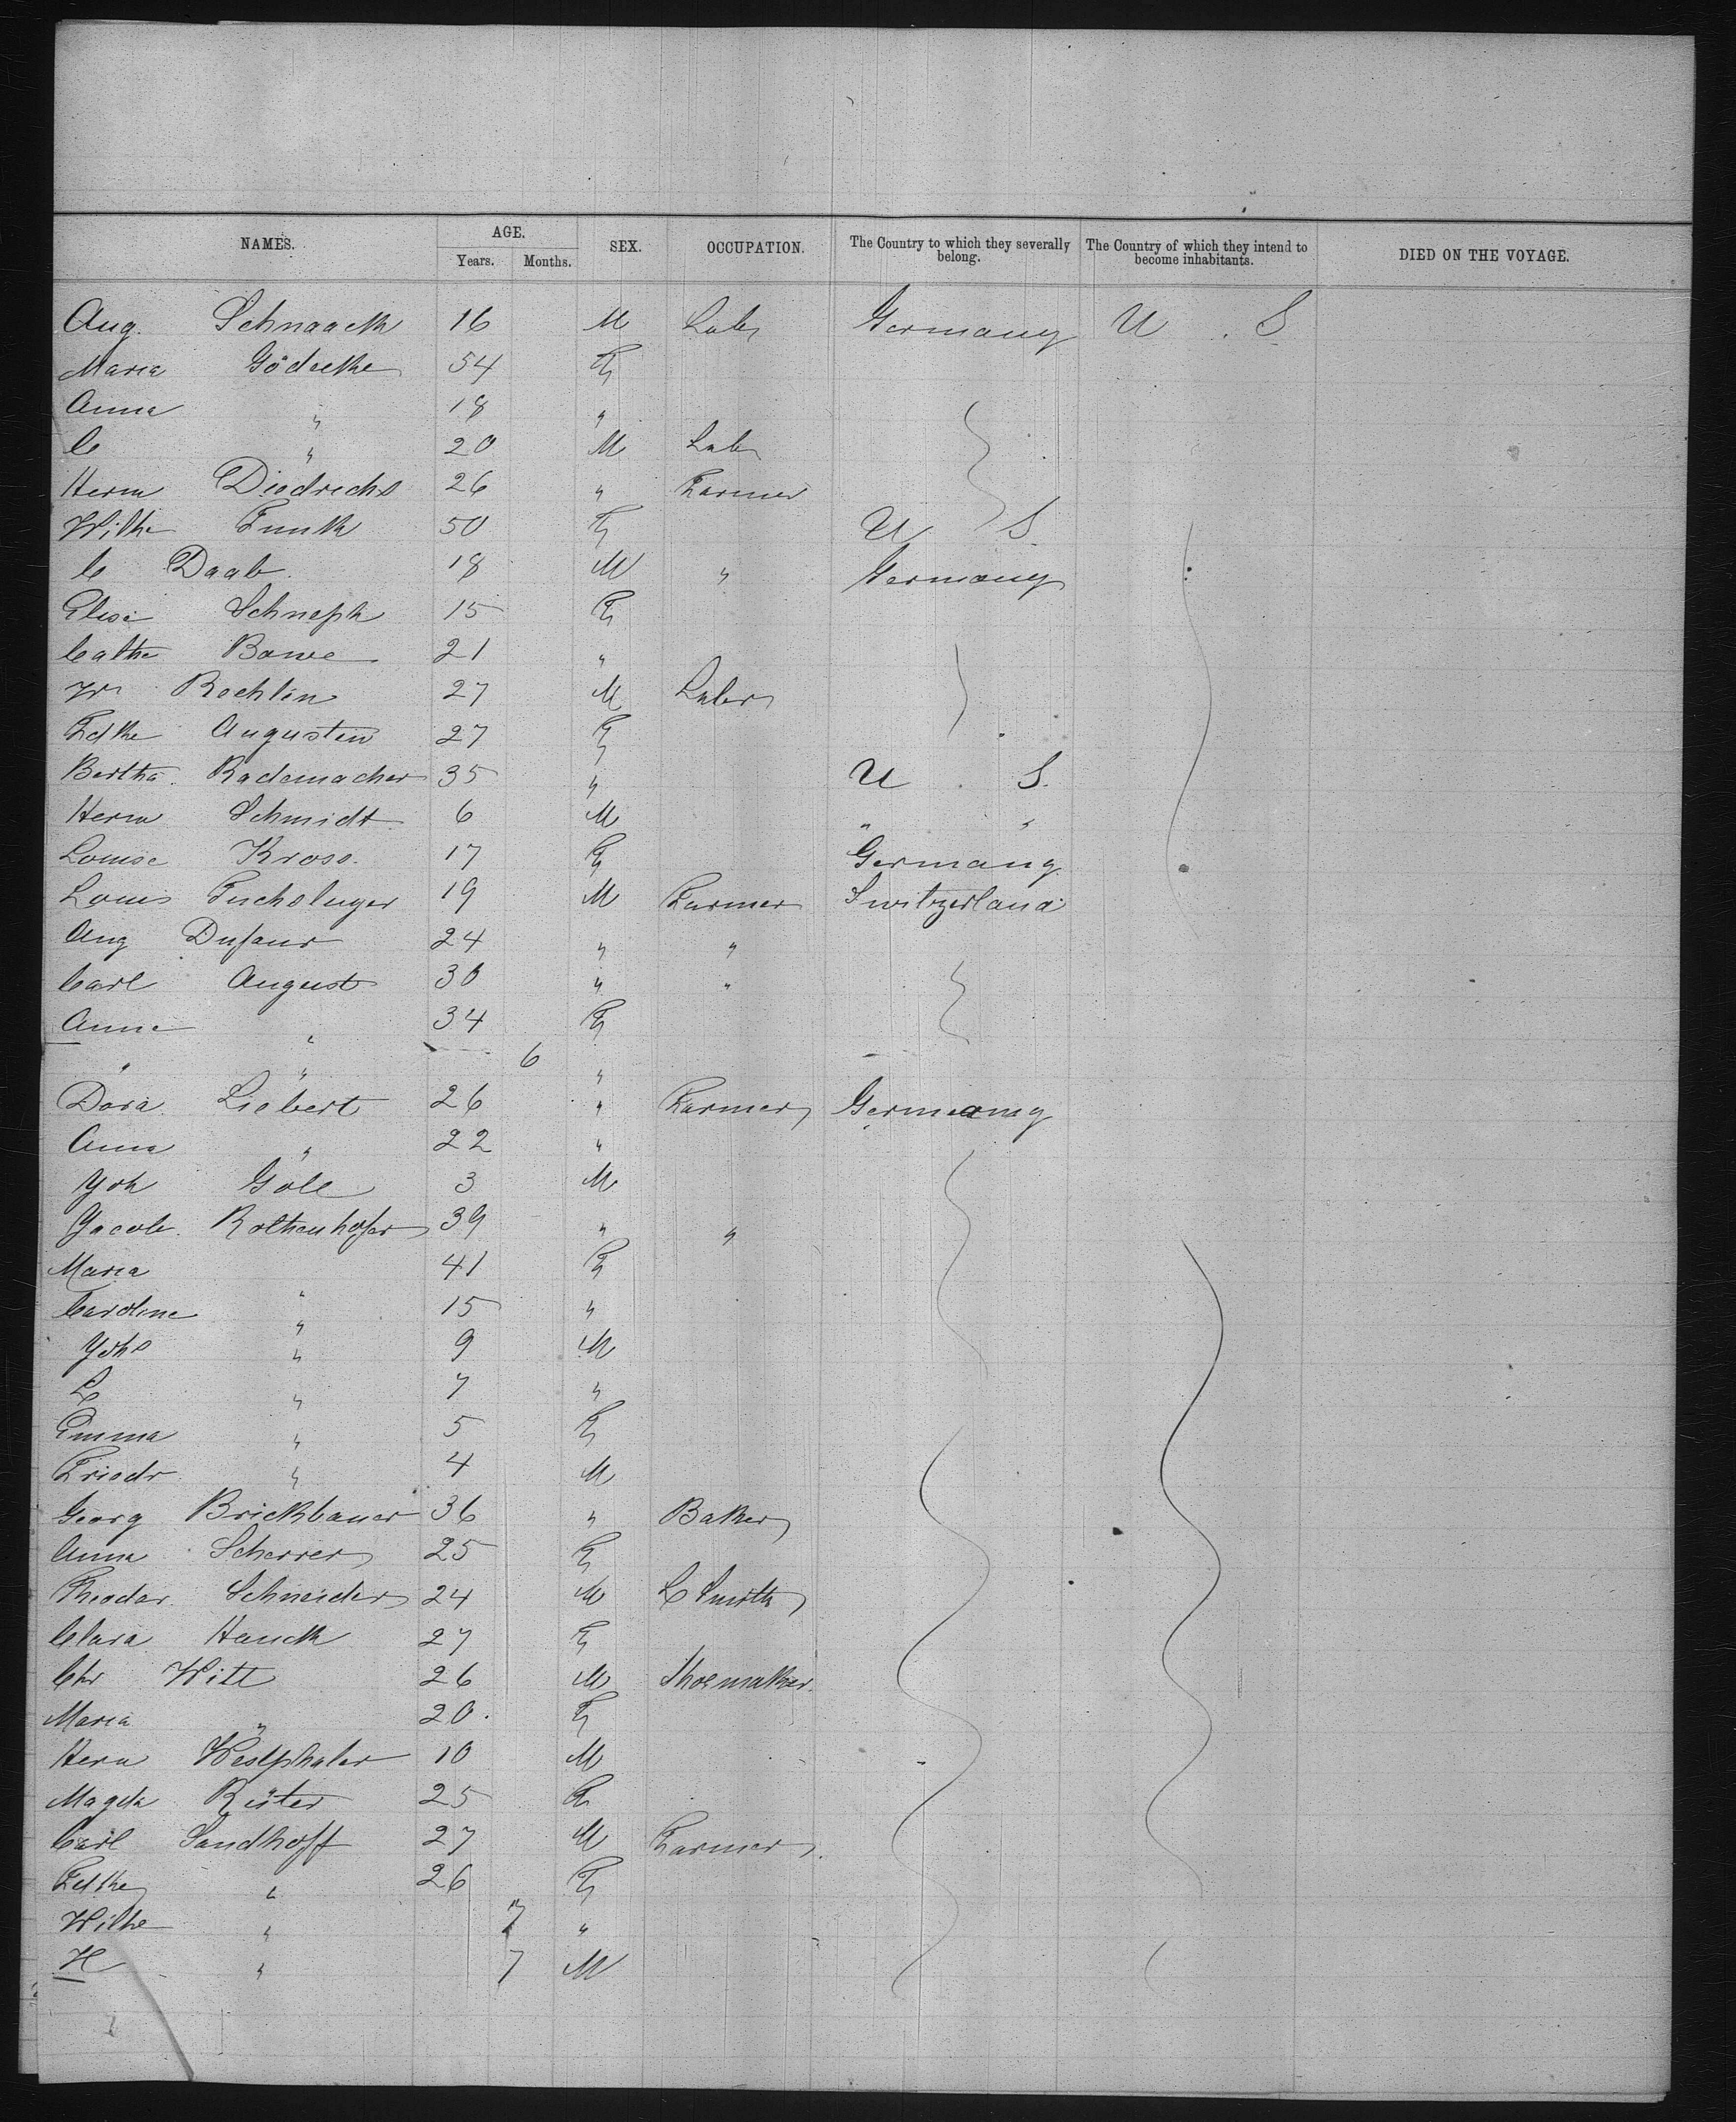 NAMES. AGE. Years. Months. SEX. OCCUPATION. The Country to which they severally belong. The Country of which they intend to become inhabitants. DIED ON THE VOYAGE.
Aug. Schnaack 16 M Labr Germany U. S
Maria Gödecke 54 F
Anna " 18 "
C " 20 M Labr
Herm Diedrichs 26 " Farmer
Wilhe Funk 50 F U S
C Daab 18 M " Germany
Elise Schneph 15 F
Cathe Bowe 21 "
W Rechlin 27 M Labr
Fdke Augusten 27 F
Bertha Rademacher 35 " U. S.
Herm Schmidt 6 M " "
Louise Kross 17 F Germany
Louis 19 M Farmer Switzerland
Aug Dufaur 24 " "
Carl August 30 " "
Anna " 34 F
" " 6 "
Dora Liebert 26 " Farmer Germany
Anna " 22 "
Joh Göle 3 M
Jacob Rothenhofer 39 " "
Maria " 41 F
Caroline " 15 "
Johs " 9 M
L " 7 "
Emma " 5 F
Friedr " 4 M
Georg Brickbauer 36 " Baker
Anna Scherrer 25 F
Theodor Schneider 24 M L Smith
Clara Hauck 27 F
Chr Witt 26 M Shoemaker
Maria " 20 F
Herm Westphaler 10 M
Magda Rüter 25 F
Carl Sandhoff 27 M Farmer
Fdke " 26 F
Wilhe " 7 "
H " 7 M